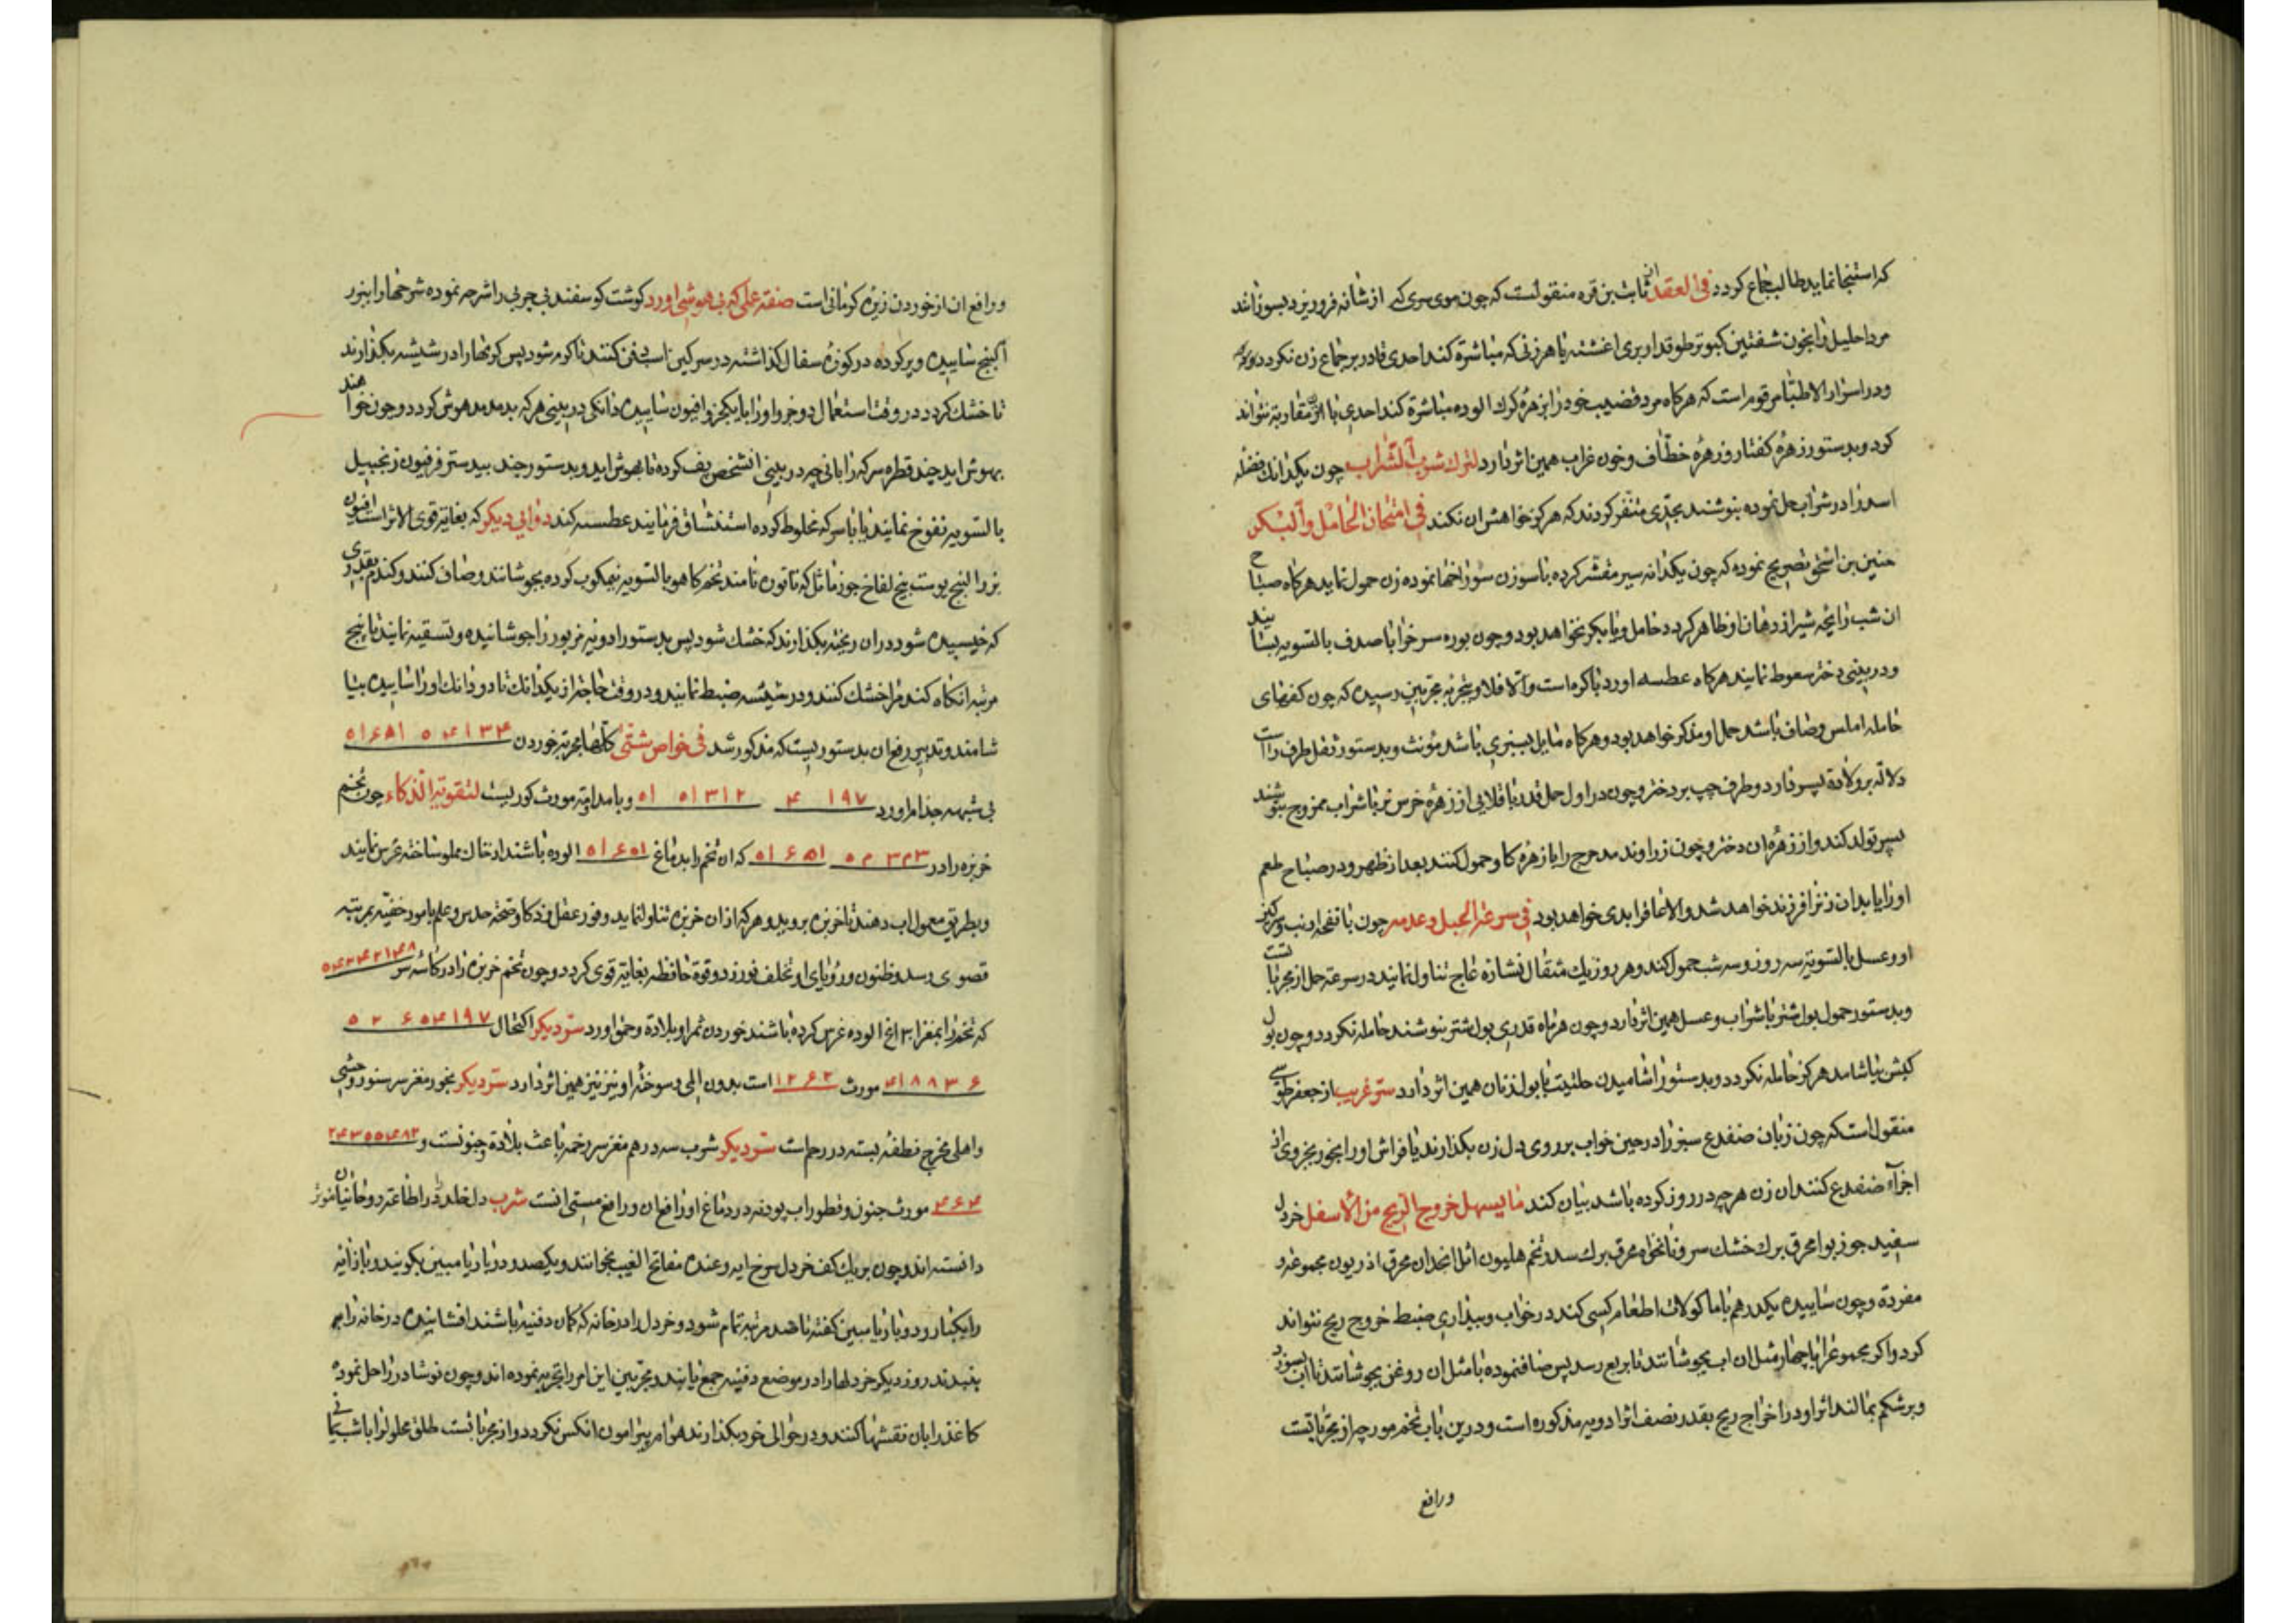 که استنجا نماید طالب جماع کردد فی العقد ثابت بن قره منقولست که چون موی سری که از شانه فرو ریزد بسوزانند
مرد احلیل را بخون شفتین کبوتر طوقدار بری اغشته با هر زنی که مباشرة کند احدی قادر بر جماع زن نکردد
و در اسرار الاطبا مرقوم است که هرکاه مرد قضیب خود را بزهرهٔ کرک الوده مباشرة کند احدی با ان زن مقاربه نتواند
کرد و بدستور زهرهٔ کفتار و زهرهٔ خطاف و خون غراب همین اثر دارد لترک شرب الشراب چون یکدانک فضله
اسد را در شراب حل نموده بنوشند بحدی متنفر کردند که هرکز خواهش ان نکند فی امتحان الحامل و البکر
حنین بن اسحق تصریح نموده که چون یکدانه سیر مقشر کرده با سوزن سوراخها نموده زن حمول نماید هرکاه صباح
ان شب رائحه سیر از دهان او ظاهر کردد حامل و یا بکر نخواهد بود و چون بوره سرخ را با صدف بالسویه بسایند
و در بینی دختر سعوط نمایند هرکاه عطسه اورد باکره است و الا فلا و بتجربه مجربین رسیده که چون کفهای
حامله املس و صاف باشد حمل او مذکر خواهد بود و هرکاه مایل بسبزی باشد مؤنث و بدستور ثقل طرف راست
دلالة بر ولادة پسر دارد و طرف چپ بر دختر و چون در اول حمل قدر باقلایی از زهرهٔ خرس نر با شراب ممزوج بنوشند
پسر تولد کند و از زهرهٔ ان دختر و چون زراوند مدحرج را با زهرهٔ کاو حمول کنند بعد از ظهر و در صباح طعم
او را یابد ان زنرا فرزند خواهد شد و الا عاقر ابدی خواهد بود فی سرعة الحبل و عدمه چون با نفحه ارنب و سرکین
او و عسل بالسویه سه روز و سه شب حمول کند و هر روز یک مثقال نشاره عاج تناول نمایند در سرعة حمل از مجربا تست
و بدستور حمول بول شتر با شراب و عسل همین اثر دارد و چون هر ماه قدری بول شتر بنوشند حامله نکردد و چون بول
کبش بیاشامد هرکز حامله نکردد و بدستور اشامیدن حلتیت با بول زنان همین اثر دارد سر غریب از جعفر طوسی
منقول است که چون زبان ضفدع سبز را در حین خواب بر روی دل زن بکذارند یا فراش او را بخور بجزوی از
اجزاء ضفدع کنند ان زن هرچه در روز کرده باشد بیان کند ما یسهل خروج الریح من الاسفل خردل
سفید جوز بوا محرق برک خشک سرو نانخواه محرق برک سدر تخم هلیون اثل انجدان محرق اذریون مجموعه و
مفردة و چون ساییده یکدرهم با ماکولات اطعام کسی کند در خواب و بیداری ضبط خروج ریح نتواند
کرد و اکر مجموع را با چهار مثل ان اب بجوشانند تا بربع رسد پس صاف نموده با مثل ان روغن بجوشانند تا اب بسوزد
و بر شکم بمالند اثر او در اخراج ریح بقدر نصف اثر ادویه مذکوره است و درین باب تخم مورچه از مجربا تست
ورافع
و رافع ان از خوردن زیره کرمانی است صفة عملی که بی هوشی اورد کوشت کوسفند بی چربی را شرحه نموده شرحها را ببزر
البنج ساییده و پر کرده در کوزهٔ سفال کذاشته در سرکین اسب دفن کنند تا کرم شود پس کرمها را در شیشه بکذارند
تا خشک کردد در وقت استعمال دو جزو او را با یکجزو افیون ساییده دانکی در بینی هرکه بدمند مدهوش کردد و چون خواهند
بهوش اید چند قطره سرکه را با نی چه در بینی انشخص پف کرده تا بهوش اید و بدستور جند بیدستر فرفیون زنجبیل
بالسویه نفوخ نمایند یا با سرکه مخلوط کرده استنشاق فرمایند عطسه کند دوائی دیکر که بغایة قوی الاثر است افیون
بزر البنج پوست بیخ لفاح جوز ماثل که تاتوره نامند تخم کاهو بالسویه نیمکوب کرده بجوشانند و صاف کنند و کندم بقدری
که خیسیده شود در ان ریخته بکذارند که خشک شود پس بدستور ادویه مزبور را جوشانیده و تسقیه نمایند تا پنج
مرتبه انکاه کندم را خشک کنند و در شیشه ضبط نمایند و در وقت حاجة از یکدانک تا دو دانک او را ساییده بیا
شامند و تدبیر رفع ان بدستوریست که مذکور شد فی خواص شتی کلها مجربة خوردن ۵۴۱۳۴ ۵۱۶۵۱
بی شبهه جذام اورد ۱۹۷ ۴ ۵۱۳۱۲ ۵۱ و با مداومة مورث کوریست لتقویة الذکاء چون تخم
خربزه را در ۵۲۳۲۳ ۵۱۶۵۱ که ان تخم را بدماغ ۵۱۶۵۱ الوده باشند از خاک مملو ساخته غرس نمایند
و بطریق معمول اب دهند تا خربزه بروید و هرکه از ان خربزه تناول نماید وفور عقل و ذکا و صحة حدس و علم بامور خفیه بمرتبه
قصوی رسد و ظنون و رؤیای او تخلف نورزد و قوة حافظه بغایة قوی کردد و چون تخم خربزه را در کاسهٔ سر ۵۴۲۴۲۱۴۸
که تخم را بمغز الاغ الوده غرس کرده باشند خوردن ثمر او بلادة و حمق اورد سر دیکر اکتحال ۵۲ ۶۵۴۱۹۷
۴۱۸۸۳۶ مورث ۱۲۶۲ است بدون المی و سوختهٔ او نیز نیز همین اثر دارد سر دیکر بخور مغز سر سنور وحشی
و اهلی مخرج نطفهٔ بسته در رحم است سر دیکر شرب سه درهم مغز سر رخمه باعث بلادة و جنونست و ۲۴۳۵۵۴۸۲
۴۶۴ مورث جنون و قطور اب پودنه در دماغ او رافع ان و رافع مستی انست شرب دل خلد را در اطاعة روحانیان موثر
دانسته اند و چون بر یک کف خردل سرخ ایه و عنده مفاتح الغیب بخوانند و یکصد و دو بار یا مبین بکویند و باز ایه
را یکبار و دو بار یا مبین کفته تا صد مرتبه تمام شود و خردل را در خانه که کمان دفینه باشند افشانیده در خانه را
ببندند روز دیکر خردلها را در موضع دفینه جمع یابند و مجربین این امر را تجربه نموده اند و چون نوشادر را حل نموده
کاغذ را بان نقشها کنند و در حوالی خود بکذارند هوام پیرامون انکس نکردد و از مجربا تست طلق محلول را با شب یمانی